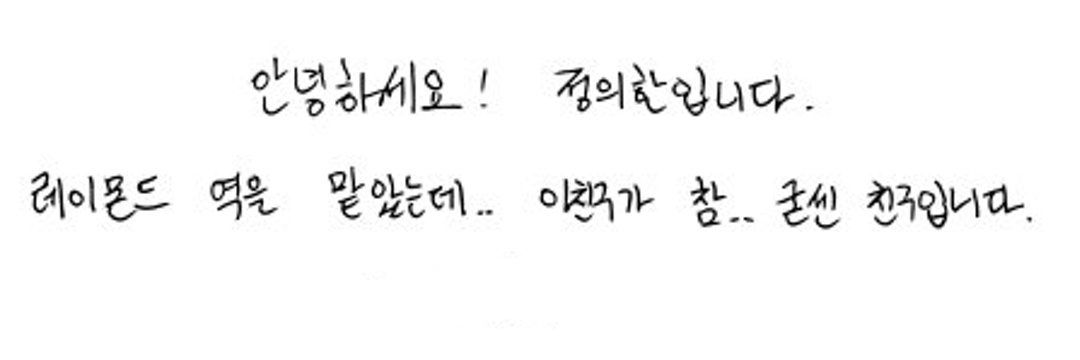 안녕하세요! 정의한입니다.
레이몬드 역을 맡았는데.. 이친구가 참.. 굳센 친구입니다.